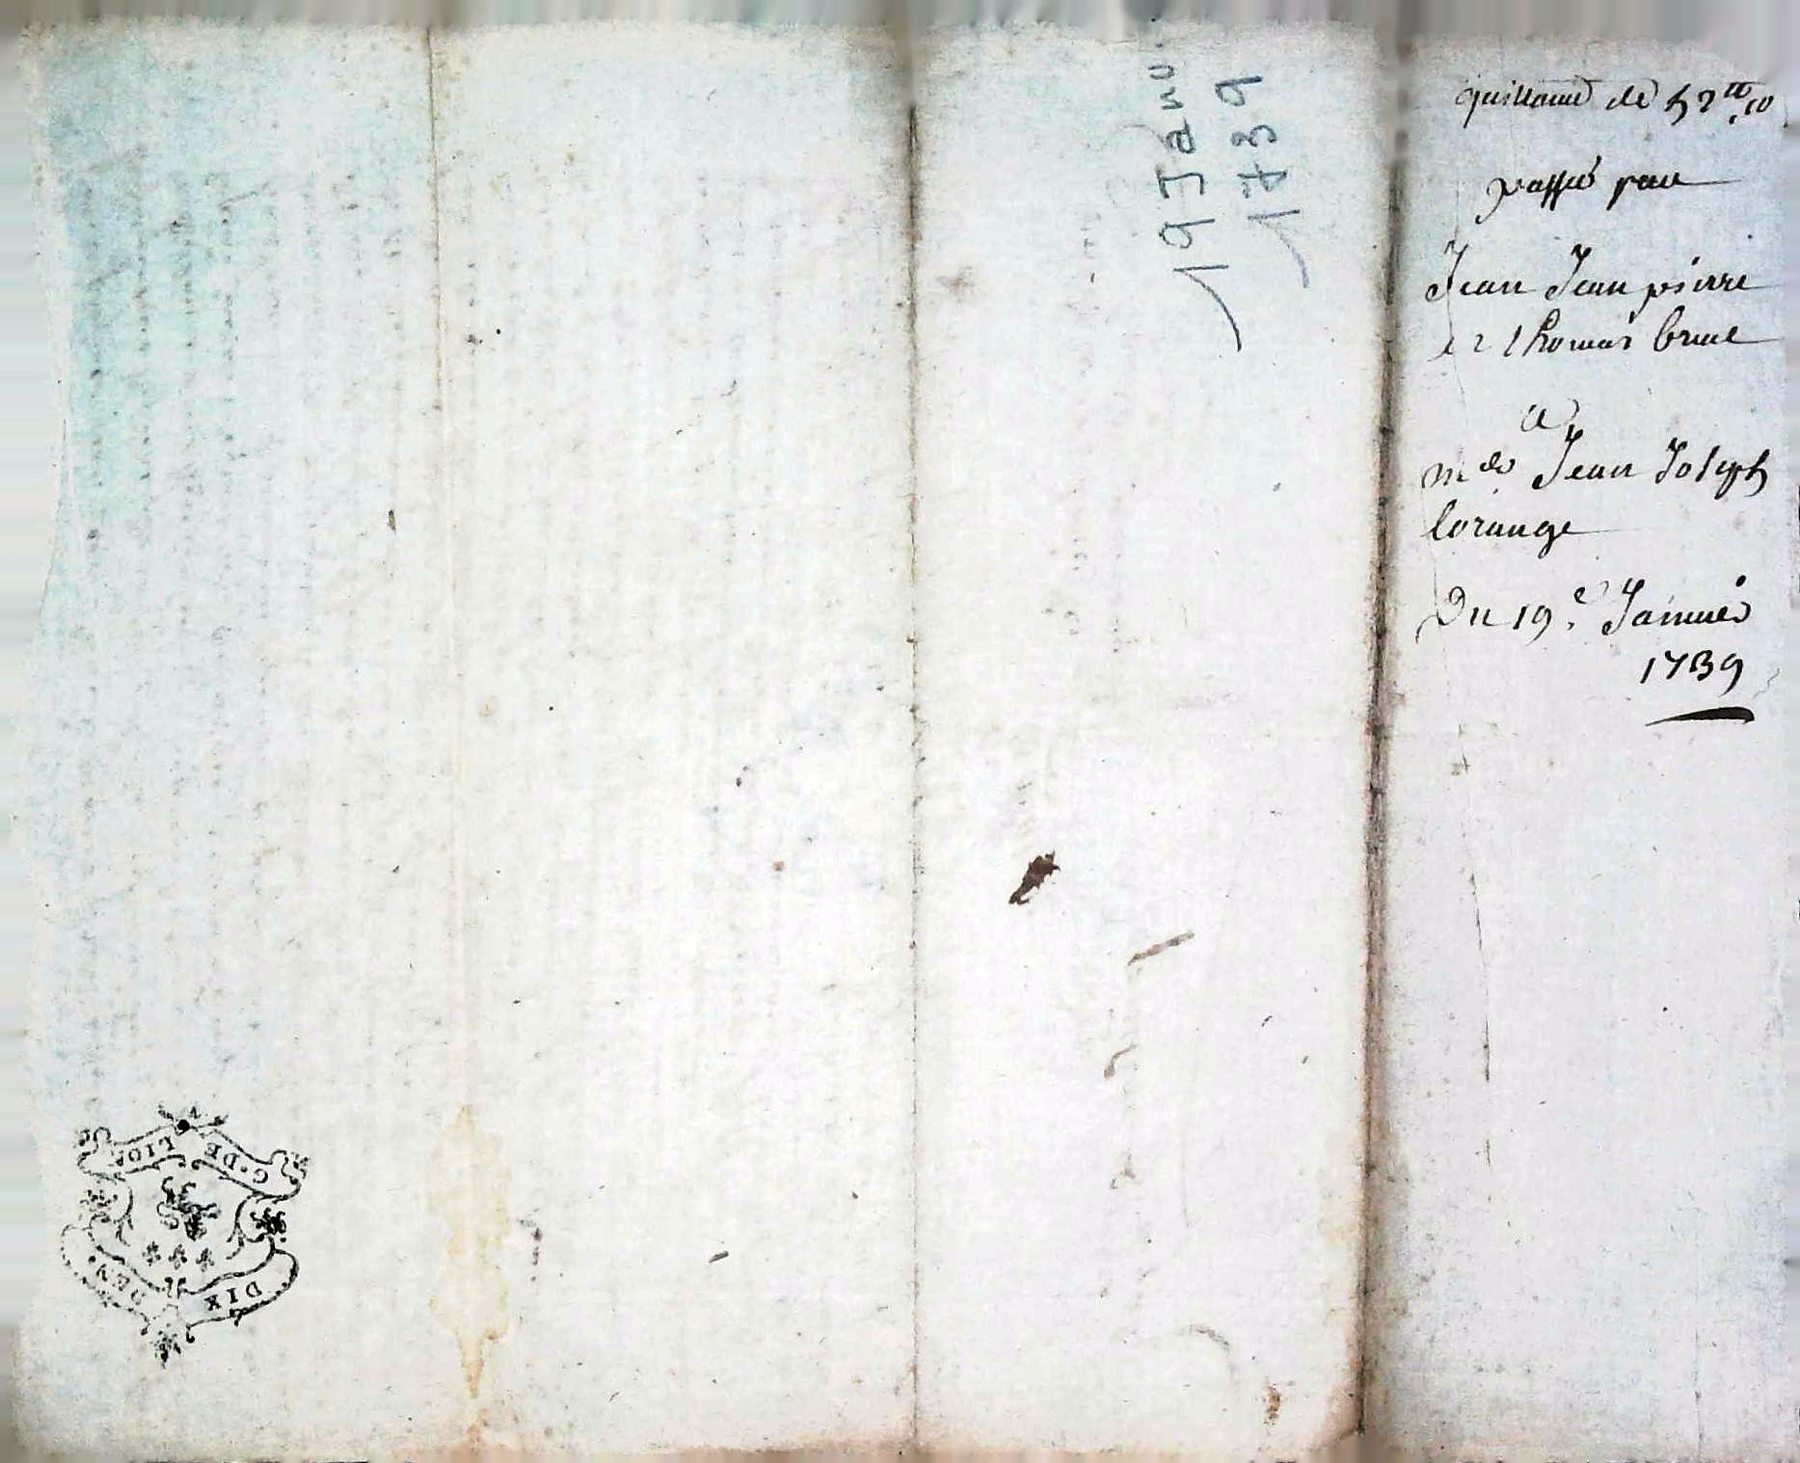 19 Janv.
1739
quittance de 52 tt 10
passée par
Jean Jean pierre
et thomas brun
a
m de Jean Joseph
lorange
Du 19e Janvier
1739
G. DE LION
DIX DEN.